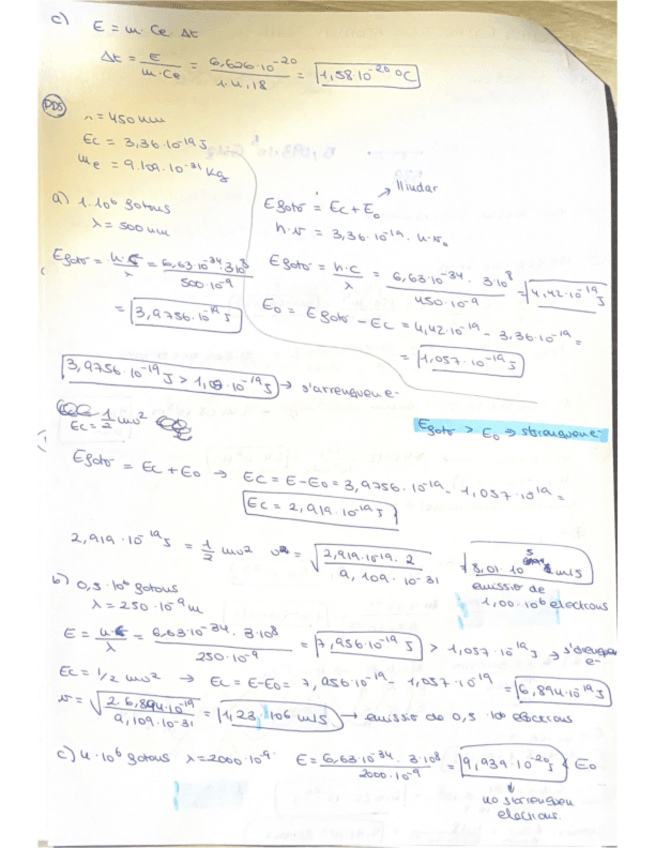 c) E = m · Ce · Δt
Δt = E / m·Ce = 6,626·10⁻²⁰ / 1·4,18 = 1,58·10⁻²⁰ ºC
PDS
λ = 450 nm
Ec = 3,36·10⁻¹⁹ J
me = 9.109·10⁻³¹ kg
a) 1·10⁶ fotons
λ = 500 nm
Efotó = h·c / λ = 6,63·10⁻³⁴ · 3·10⁸ / 500·10⁻⁹
= 3,9756·10⁻¹⁹ J
→ llindar
Efotó = Ec + E₀
h·ν = 3,36·10⁻¹⁹ · h·ν₀
Efotó = h·c / λ = 6,63·10⁻³⁴ · 3·10⁸ / 450·10⁻⁹ = 4,42·10⁻¹⁹ J
E₀ = Efotó - Ec = 4,42·10⁻¹⁹ - 3,36·10⁻¹⁹ =
= 1,057·10⁻¹⁹ J
3,9756·10⁻¹⁹ J > 1,05·10⁻¹⁹ J → s'arrenquen e⁻
Ec = 1/2 mv²
Efotó > E₀ ⇒ s'arrenquen e⁻
Efotó = Ec + E₀ → Ec = E - E₀ = 3,9756·10⁻¹⁹ - 1,057·10⁻¹⁹ =
Ec = 2,919·10⁻¹⁹ J
2,919·10⁻¹⁹ J = 1/2 mv² v = √ 2,919·10⁻¹⁹ · 2 / 9,109·10⁻³¹ 8,01·10⁵ m/s
emissió de
1,00·10⁶ electrons
b) 0,5·10⁶ fotons
λ = 250·10⁻⁹ m
E = h·c / λ = 6,63·10⁻³⁴ · 3·10⁸ / 250·10⁻⁹ = 7,956·10⁻¹⁹ J > 1,057·10⁻¹⁹ J → s'arrenquen e⁻
Ec = 1/2 mv² → Ec = E - E₀ = 7,956·10⁻¹⁹ - 1,057·10⁻¹⁹ = 6,894·10⁻¹⁹ J
v = √ 2·6,894·10⁻¹⁹ / 9,109·10⁻³¹ = 1,23·10⁶ m/s → emissió de 0,5·10⁶ electrons
c) 4·10⁶ fotons λ = 2000·10⁻⁹ E = 6,63·10⁻³⁴ · 3·10⁸ / 2000·10⁻⁹ = 9,939·10⁻²⁰ J < E₀
↓
no s'arrenquen
electrons.